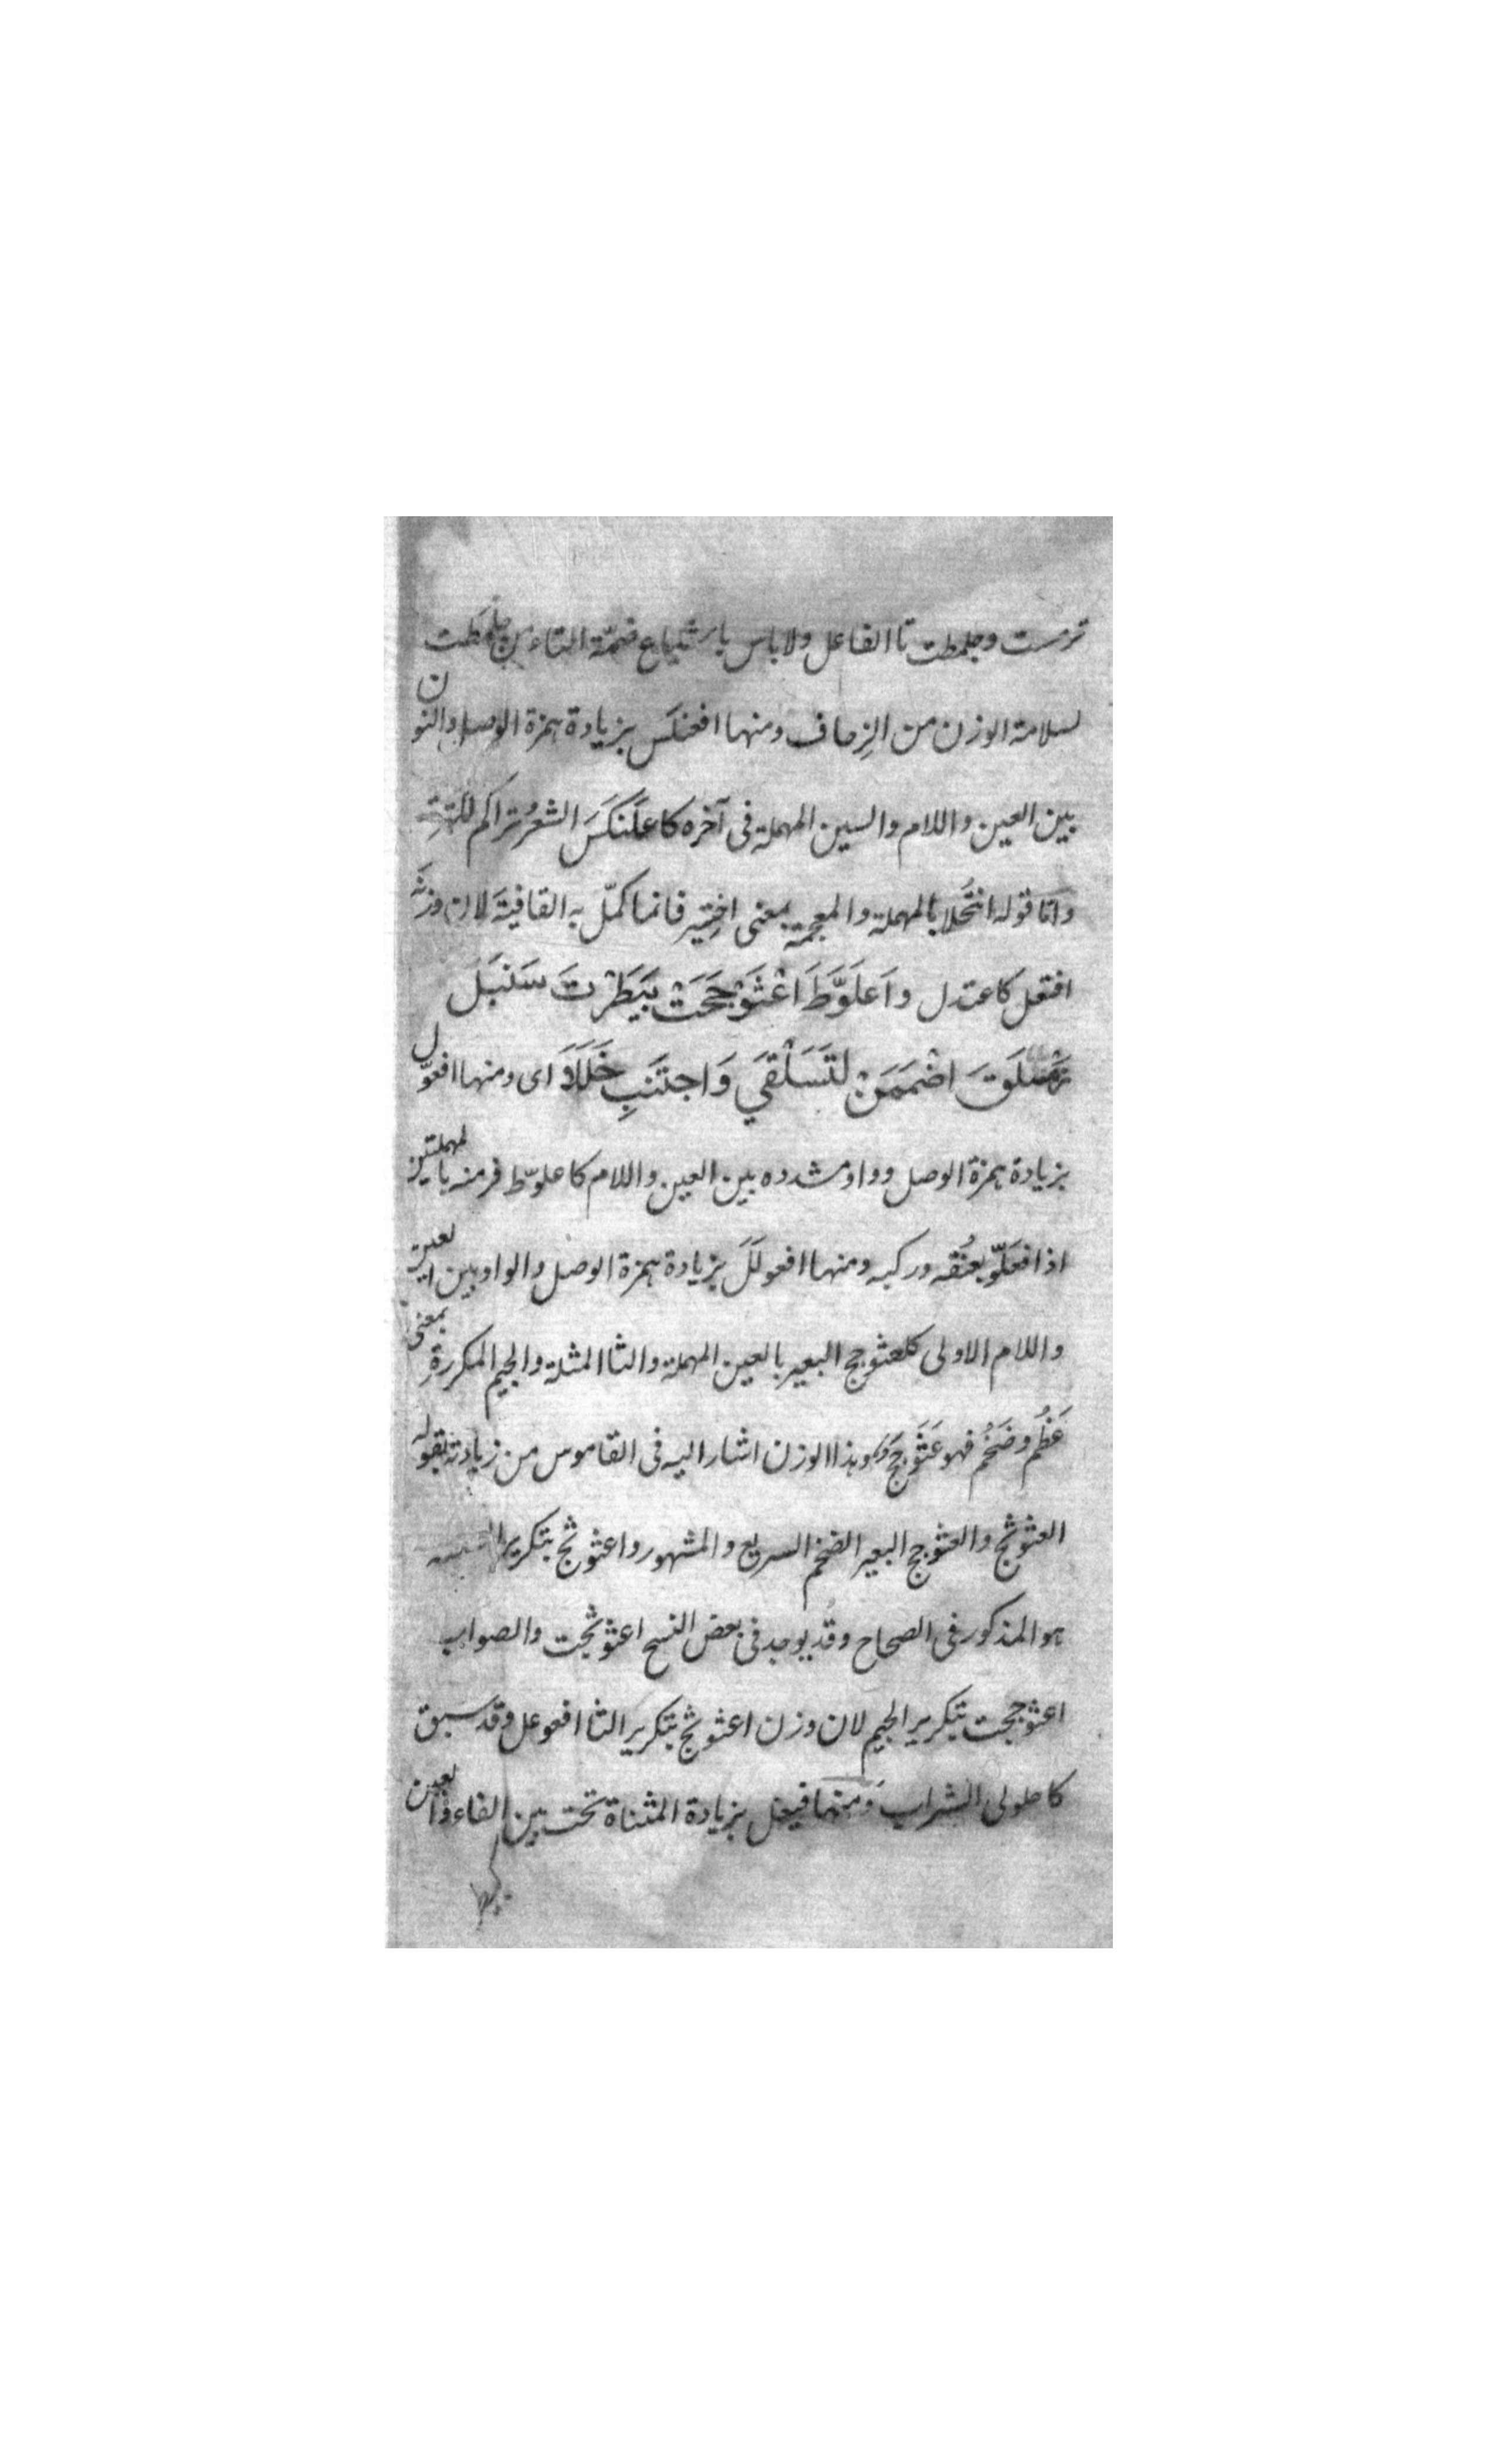 ترمست وجلمطت تا الفاعل ولا باس باشباع ضمّة التاء من جلمطت
لسلامة الوزن من الزحاف ومنها افعنلَس بزيادة همزة الوصل والنون
بين العين واللام والسين المهملة فى آخره كاعلَنكَسَ الشعرُ تراكم لكثرته
وامّا قوله انتُحلا بالمهملة والمعجمة بمعنى اختِير فانما كمّل به القافيةَ لان وزنَه
افتعل كاعتدل واَعلَوَّطَ اعْثَوْجَجَتْ بَيَطَرْتَ سَنبَلَ
زَمْلَقَ اضْمَمَنْ لتَسَلْقَي وَاجتَنَبِ خَلَلَا اى ومنها افعوّل
بزيادة همزة الوصل وواو مشدده بين العين واللام كاعلوّط فرسه بالمهملتين
اذا تعلّق بعُنقه وركبه ومنها افعولَلَ بزيادة همزة الوصل والواو بين العين
واللام الاولى كاعثوجج البعير بالعين المهملة والثا المثلثة والجيم المكررةِ بمعنى
عَظُم وضَخُم فهو عَثَوجَج وهذا الوزن اشار اليه فى القاموس من زيادته بقوله
العثوثج والعثوجج البعير الضخم السريع والمشهور واعثوثج بتكرير
هو المذكور فى الصحاح وقد يوجد فى بعض النسخ اعثوثجت والصواب
اعثوججت بتكرير الجيم لان وزن اعثوثج بتكرير الثا افعوعل وقد سبق
كاحلولى الشراب ومنها فيعل بزيادة المثناة تحت بين الفاء والعين